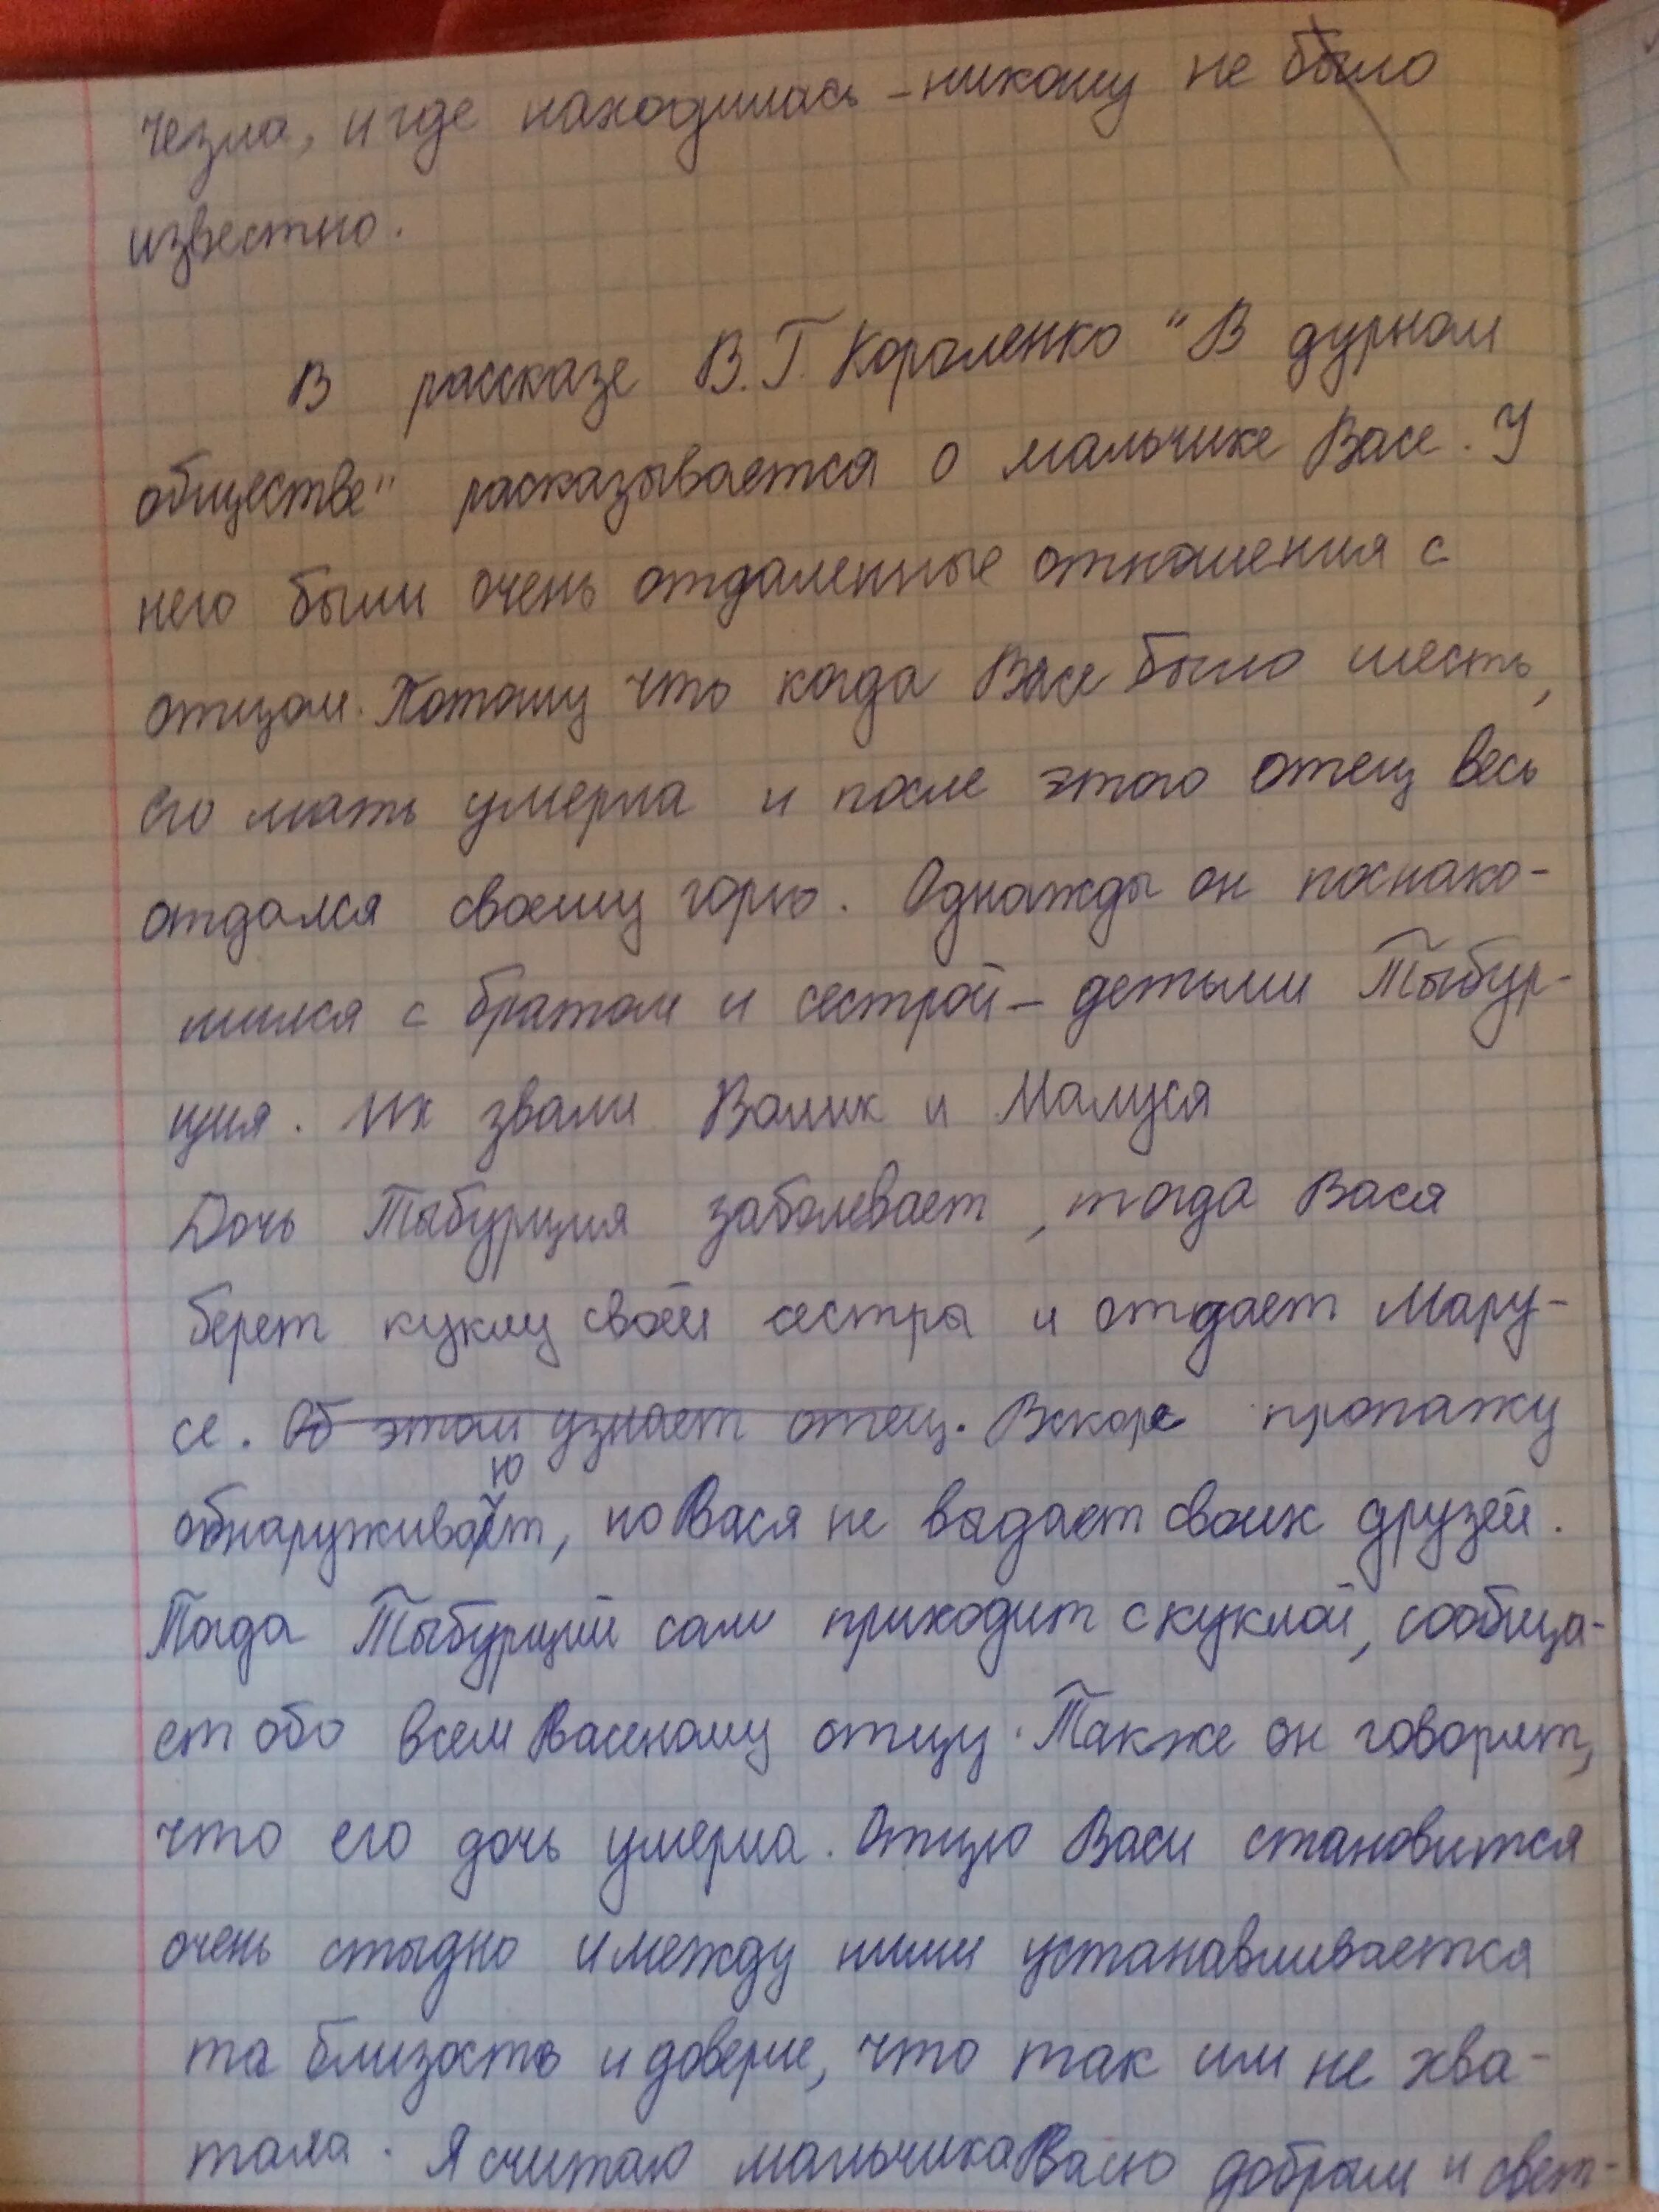 чезла, и где находилась – никому не было
известно.
В рассказе В.Г. Короленко "В дурном
обществе" расказывается о мальчике Васе. У
него были очень отдаленные отношения с
отцом. Потому что когда Васе было шесть,
его мать умерла и после этого отец весь
отдался своему горю. Однажды он познако-
мился с братом и сестрой – детьми Тыбур-
ция. Их звали Валик и Малуся
Дочь Тыбурция заболевает, тогда Вася
берет куклу своей сестры и отдает Мару-
се. Об этом узнает отец. Вскоре пропажу
обнаруживают, но Вася не выдает своих друзей.
Тогда Тыбурций сам приходит с куклой, сообща-
ет обо всем Васеному отцу. Также он говорит,
что его дочь умерла. Отцю Васи становится
очень стыдно и между ними устанавливается
та близость и доверие, что так им не хва-
тала. Я считаю мальчика Васю добрым и свет-